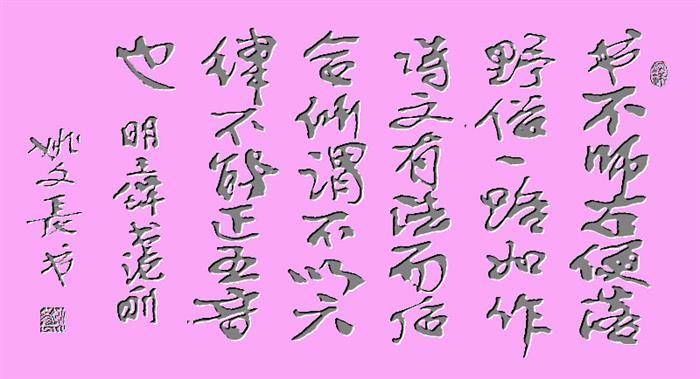 书不师古便落
野俗一路如作
诗文有法而后
合所谓不以六
律不能正五音
也 明王鐸书
文長书